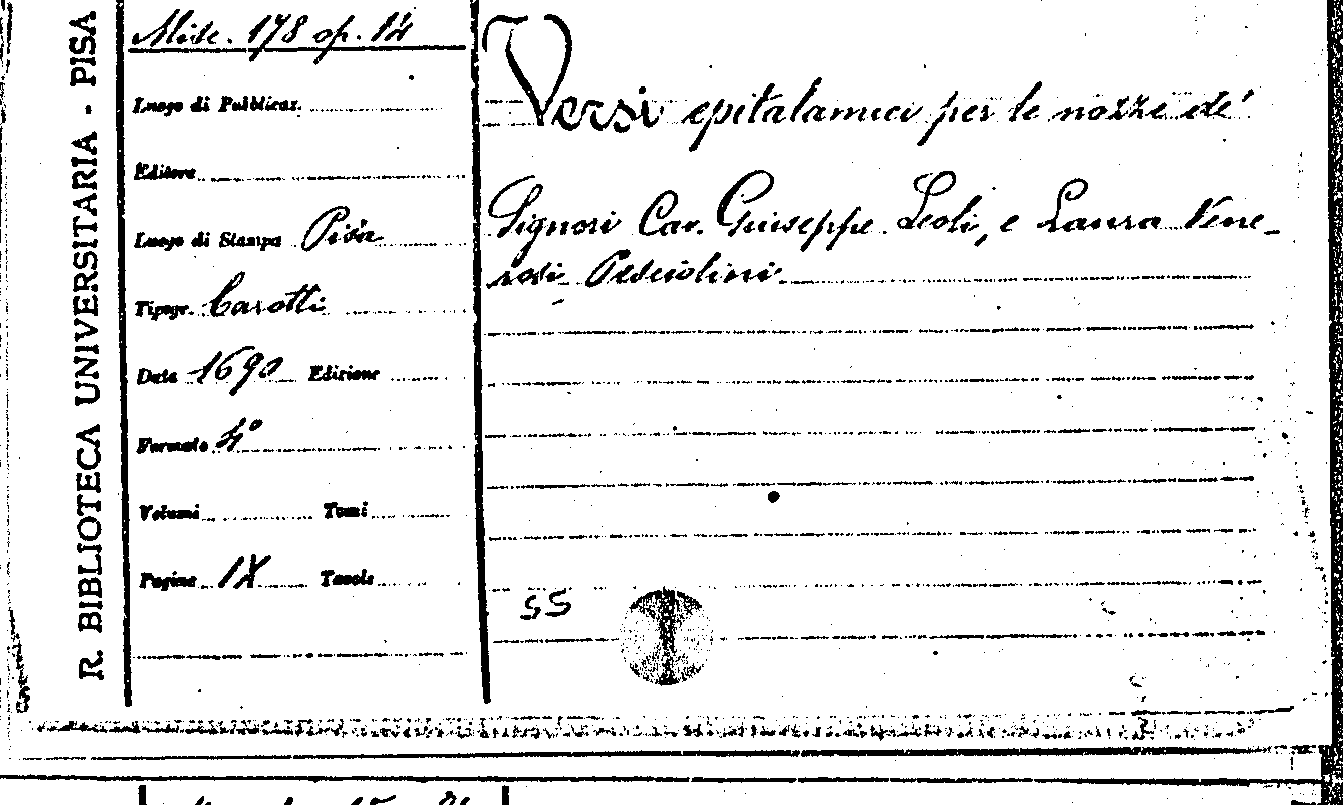 R. BIBLIOTECA UNIVERSITARIA - PISA
Misc. 178 op. 14
Luogo di Pubblicaz.
Editore
Luogo di Stampa Pisa
Tipogr. Carotti
Data 1690 Edizione
Formato 4°
Volumi Tomi
Pagine IX Tavole
Versi epitalamici per le nozze de'
Signori Cav. Giuseppe Leoli, e Laura Vene-
rosi Pesciolini
SS